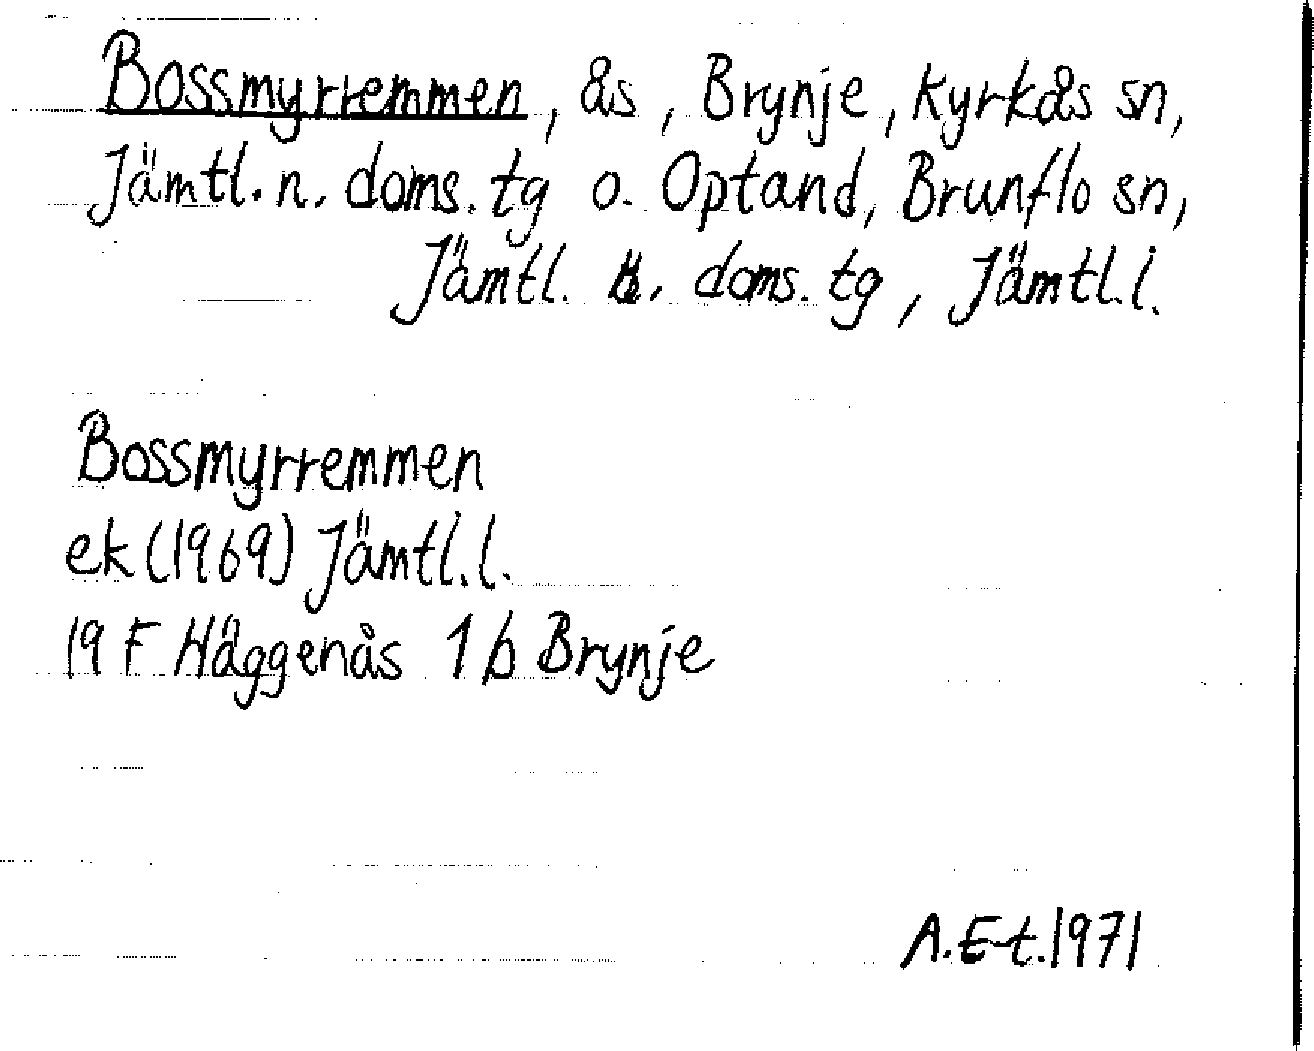 Bossmyrremmen, ås, Brynje, Kyrkås sn,
Jämtl. n. doms. tg o. Optand, Brunflo sn,
Jämtl. doms. tg, Jämtl.l.
Bossmyrremmen
ek (1969) Jämtl.l.
19 F Häggenås 1 b Brynje
A.E-t. 1971